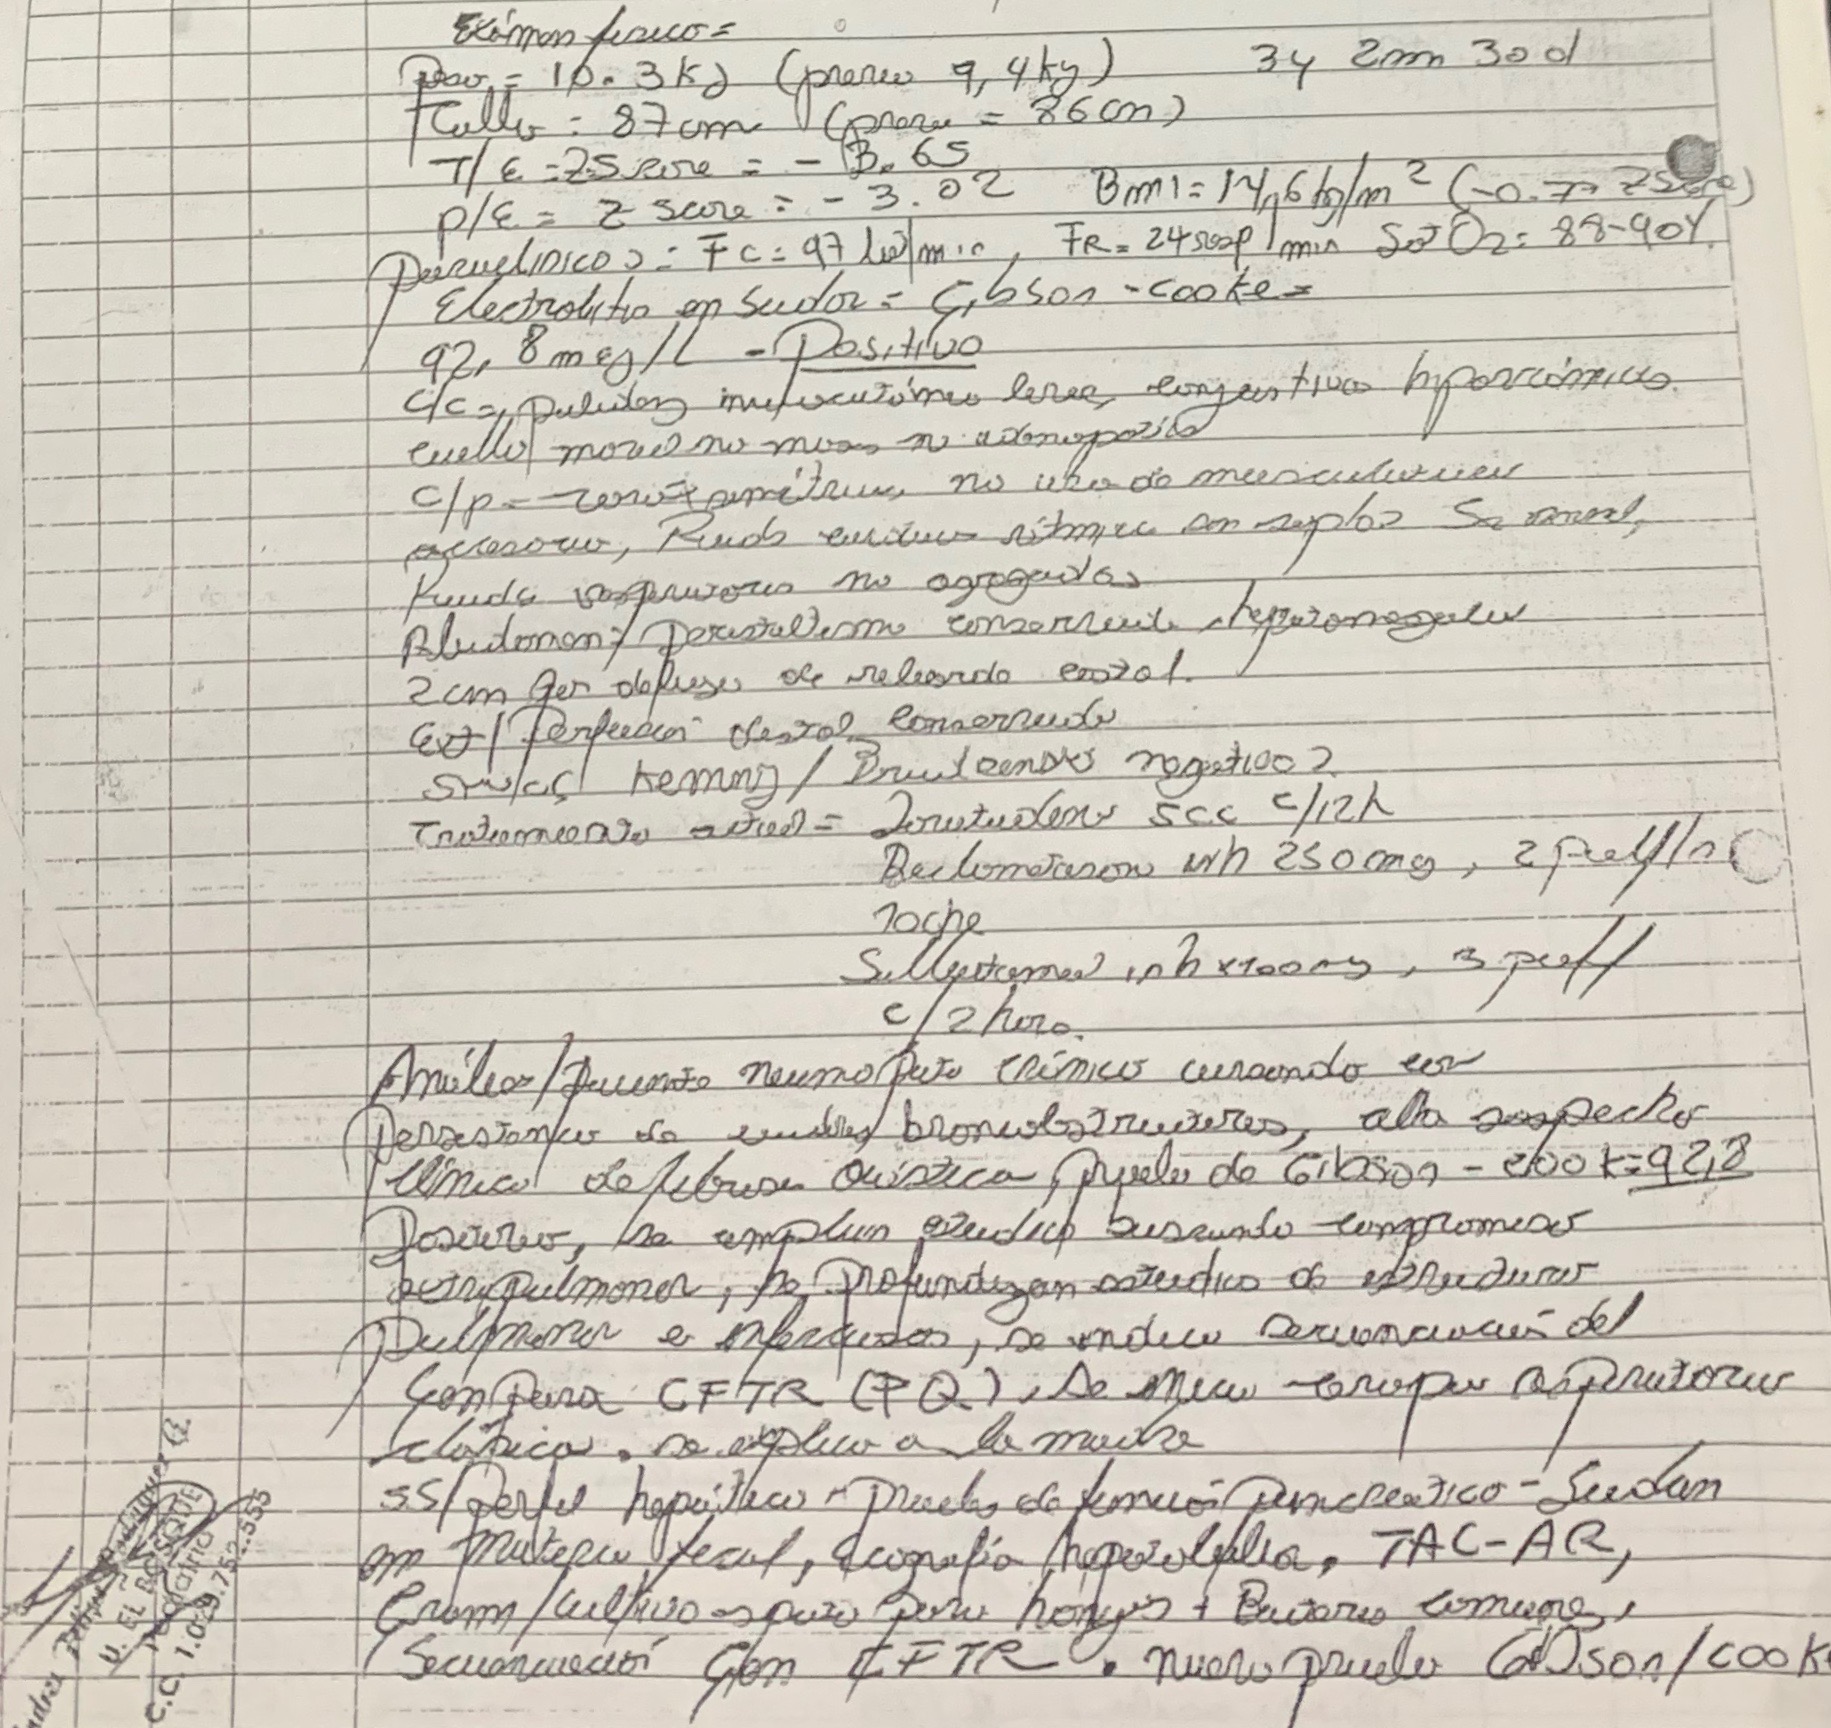 Exámen físico =
Peso = 10.3kg (previo 9,4kg) 3y 2m 30d
Talla = 87cm (previa = 86cm)
T/E = Z Score = - 3.65
P/E = Z Score = - 3.02 BMI = 14,6 kg/m² (-0.77 ZScore)
Paraclínicos = FC = 97 lat/min, FR = 24 resp/min Sat O2 = 88-90%.
Electrolitos en Sudor = Gibson - Cooke =
92,8 meq/L - Positivo
C/C =, palidez mucocutánea leve, conjuntivas hipocrómicas.
cuello movil no masas no adenopatía
C/p = torax simétrico, no uso de musculatura
accesoria, Ruidos cardiacos rítmicos sin soplos
Ruidos respiratorios no agregados
Abdomen / peristaltismo conservado, hepatomegalia
2cm por debajo de reborde costal.
Ext / Perfusión distal conservada
SNC Kerning / Brudzensky negativos
Tratamiento actual = 5cc c/12h
Beclometasona inh 250mg, 2 puff/
noche
Salbutamol inh x 100mg, 3 puff
c/2 hora.
Análisis / Paciente neumopata crónico cursando con
persistencia de cuadros broncobstructivos, alta sospecha
clínica de fibrosis Quística, prueba de Gibson - Cook = 92,8
Positivo, se amplian estudios buscando compromiso
extrapulmonar, se profundizan estudios de estructura
pulmonar e infecciosos, se indica secuenciación del
Gen para CFTR (FQ), se inicia terapia respiratoria
. se explica a la madre
SS/ perfil hepático - prueba de función pancreático - Sudan
en materia fecal, ecografía hepatobiliar, TAC-AR,
Gram / cultivo esputo para hongos + Bacterias comunes,
Secuenciación Gen CFTR. nueva prueba Gibson/Cook
U. EL BOSQUE
C.C. 1.029.752.555